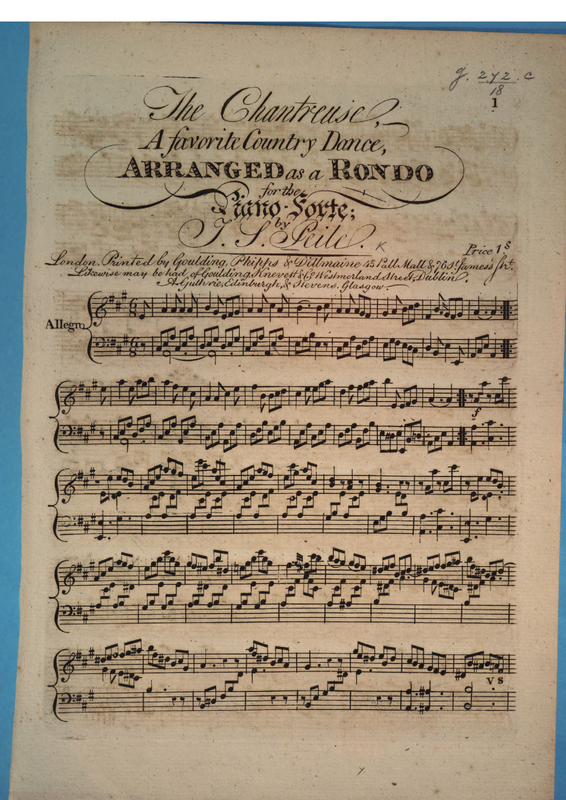 g. 272. c
18
1
The Chantreuse,
A favorite Country Dance,
ARRANGED as a RONDO
for the
Piano-Forte;
by
J. S. Peile.
Price 1s
London. Printed by Goulding, Phipps & D'Almaine 45 Pall Mall & 76 St. James's Str.
Likewise may be had, of Goulding, Knevett & Co. Westmorland Street, Dublin,
A. Guthrie, Edinburgh, & Stevens. Glasgow.
Allegro
f
V S